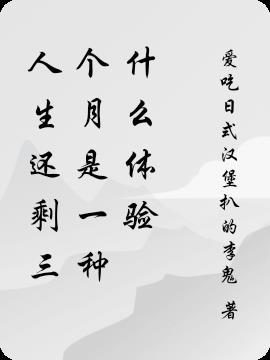 人生还剩三
个月是一种
什么体验
爱吃日式汉堡扒的李鬼 著